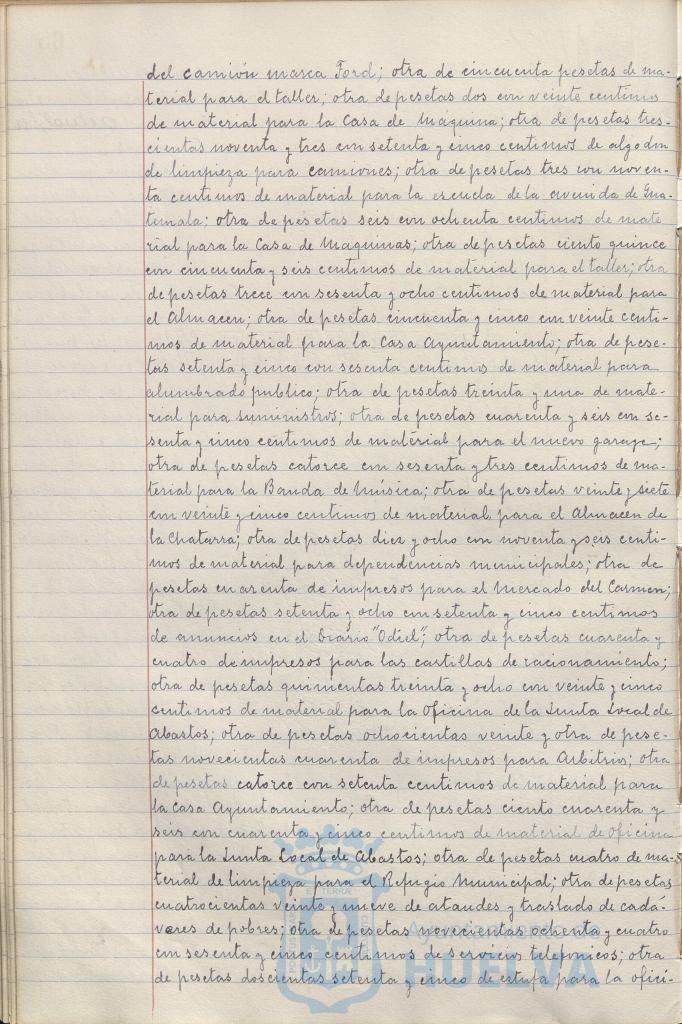 del camión marca Ford; otra de cincuenta pesetas de ma-
terial para el taller; otra de pesetas dos con veinte centimos
de material para la Casa de Maquina; otra de pesetas tres-
cientas noventa y tres con setenta y cinco centimos de algodon
de limpieza para camiones; otra de pesetas tres con noven-
ta centimos de material para la escuela de la avenida de Gua-
temala; otra de pesetas seis con ochenta centimos de mate
rial para la Casa de Maquinas; otra de pesetas ciento quince
con cincuenta y seis centimos de material para el taller; otra
de pesetas trece con sesenta y ocho centimos de material para
el Almacen; otra de pesetas cincuenta y cinco con veinte centi-
mos de material para la Casa Ayuntamiento; otra de pese-
tas setenta y cinco con sesenta centimos de material para
alumbrado publico; otra de pesetas treinta y una de mate-
rial para suministros; otra de pesetas cuarenta y seis con se-
senta y cinco centimos de material para el nuevo garage;
otra de pesetas catorce con sesenta y tres centimos de ma-
terial para la Banda de Música; otra de pesetas veinte y siete
con veinte y cinco centimos de material para el Almacen de
la Chatarra; otra de pesetas diez y ocho con noventa y seis centi-
mos de material para dependencias municipales; otra de
pesetas cuarenta de impresos para el Mercado del Carmen;
otra de pesetas setenta y ocho con setenta y cinco centimos
de anuncios en el Diario "Odiel"; otra de pesetas cuarenta y
cuatro de impresos para las cartillas de racionamiento;
otra de pesetas quinientas treinta y ocho con veinte y cinco
centimos de material para la Oficina de la Junta Local de
Abastos; otra de pesetas ochocientas veinte y otra de pese-
tas novecientas cuarenta de impresos para Arbitrios; otra
de pesetas catorce con setenta centimos de material para
la Casa Ayuntamiento; otra de pesetas ciento cuarenta y
seis con cuarenta y cinco centimos de material de oficina
para la Junta Local de Abastos; otra de pesetas cuatro de ma-
terial de limpieza para el Refugio Municipal; otra de pesetas
cuatrocientas veinte y nueve de ataudes y traslado de cadá-
veres de pobres; otra de pesetas novecientas ochenta y cuatro
con sesenta y cinco centimos de servicios telefonicos; otra
de pesetas doscientas setenta y cinco de estufa para la ofici-
Ayuntamiento de
HUELVA